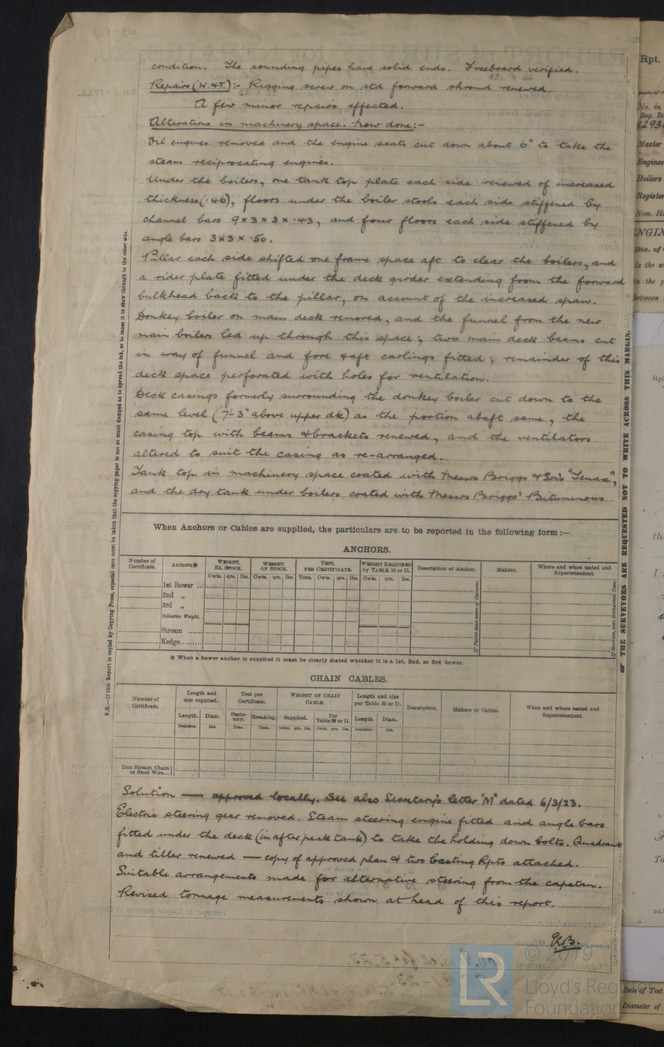 condition. The sounding pipes have solid ends. Freeboard verified.
Repairs (W.&T.):- Rigging screw on std forward shroud renewed.
A few minor repairs effected.
Alterations in machinery space. now done:-
Oil engines removed and the engine seats cut down about 6" to take the
steam reciprocating engines.
Under the boilers, one tank top plate each side renewed of increased
thickness (.46), floors under the boiler stools each side stiffened by
channel bars 9 x 3 x 3 x .43, and four floors each side stiffened by
angle bars 3 x 3 x .50.
Pillar each side shifted one frame space aft to clear the boilers, and
a rider plate fitted under the deck girder extending from the forward
bulkhead back to the pillar, on account of the increased span.
Donkey boiler on main deck removed, and the funnel from the new
main boilers led up through this space; two main deck beams cut
in way of funnel and fore & aft carlings fitted; remainder of this
deck space perforated with holes for ventilation.
Deck casings formerly surrounding the donkey boiler cut down to the
same level (7'-3" above upper dk) as the portion abaft same, the
casing top with beams & brackets renewed, and the ventilators
altered to suit the casing as re-arranged.
Tank top in machinery space coated with Messrs Briggs & Sons "Tenax",
and the dry tank under boilers coated with Messrs Briggs' Bituminous
When Anchors or Cables are supplied, the particulars are to be reported in the following form :—
ANCHORS.
Number of Certificate. Anchors.* WEIGHT, EX. STOCK. WEIGHT OF STOCK. TEST, PER CERTIFICATE. WEIGHT REQUIRED BY TABLE 30 or 31. Description of Anchor. Makers. Where and when tested and Superintendent.
Cwts. qrs. lbs. Cwts. qrs. lbs. Tons. Cwts. qrs. lbs. Cwts. qrs. lbs.
1st Bower ..
2nd „
3rd „
Collective Weight.
Stream ......
Kedge........
* When a bower anchor is supplied it must be clearly stated whether it is a 1st, 2nd, or 3rd bower.
CHAIN CABLES.
Number of Certificate. Length and size supplied. Test per Certificate. WEIGHT OF CHAIN CABLE. Length and size per Table 30 or 31. Description. Makers of Cables. When and where tested and Superintendent.
Length. Diam. Statutory. Breaking. Supplied. Per Table 30 or 31. Length. Diam.
Iron Stream Chain or Steel Wire...
Solution — approved locally. See also Secretary's letter "M" dated 6/3/23.
Electric steering gear removed. Steam steering engine fitted and angle bars
fitted under the deck (in after peak tank) to take the holding down bolts. Quadrant
and tiller renewed — copy of approved plan & two Casting Rpts attached.
Suitable arrangements made for alternative steering from the capstan.
Revised tonnage measurements shown at head of this report.
OF THE SURVEYORS ARE REQUESTED NOT TO WRITE ACROSS THIS MARGIN.
Rpt.
No. in
Reg. Bo
Master
Engines
Boilers
Register
Nom. H
ENGIN
Dia. of
Date of Test
Diameter of
© 2019
LR
Lloyd's Reg
Foundation